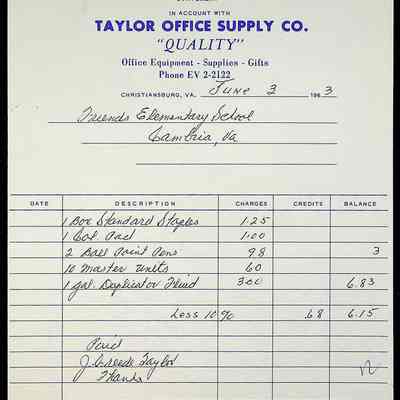 IN ACCOUNT WITH
TAYLOR OFFICE SUPPLY CO.
"QUALITY"
Office Equipment - Supplies - Gifts
Phone EV 2-2122
CHRISTIANSBURG, VA. June 3 1963
Friends Elementary School
Cambria, Va
DATE DESCRIPTION CHARGES CREDITS BALANCE
1 Box Standard Staples 1.25
1 Col Pad 1.00
2 Ball Point Pens 98 3
10 Master Units 60
1 gal. Duplicator Fluid 300 6.83
Less 10% .68 6.15
Paid
Taylor
Thanks